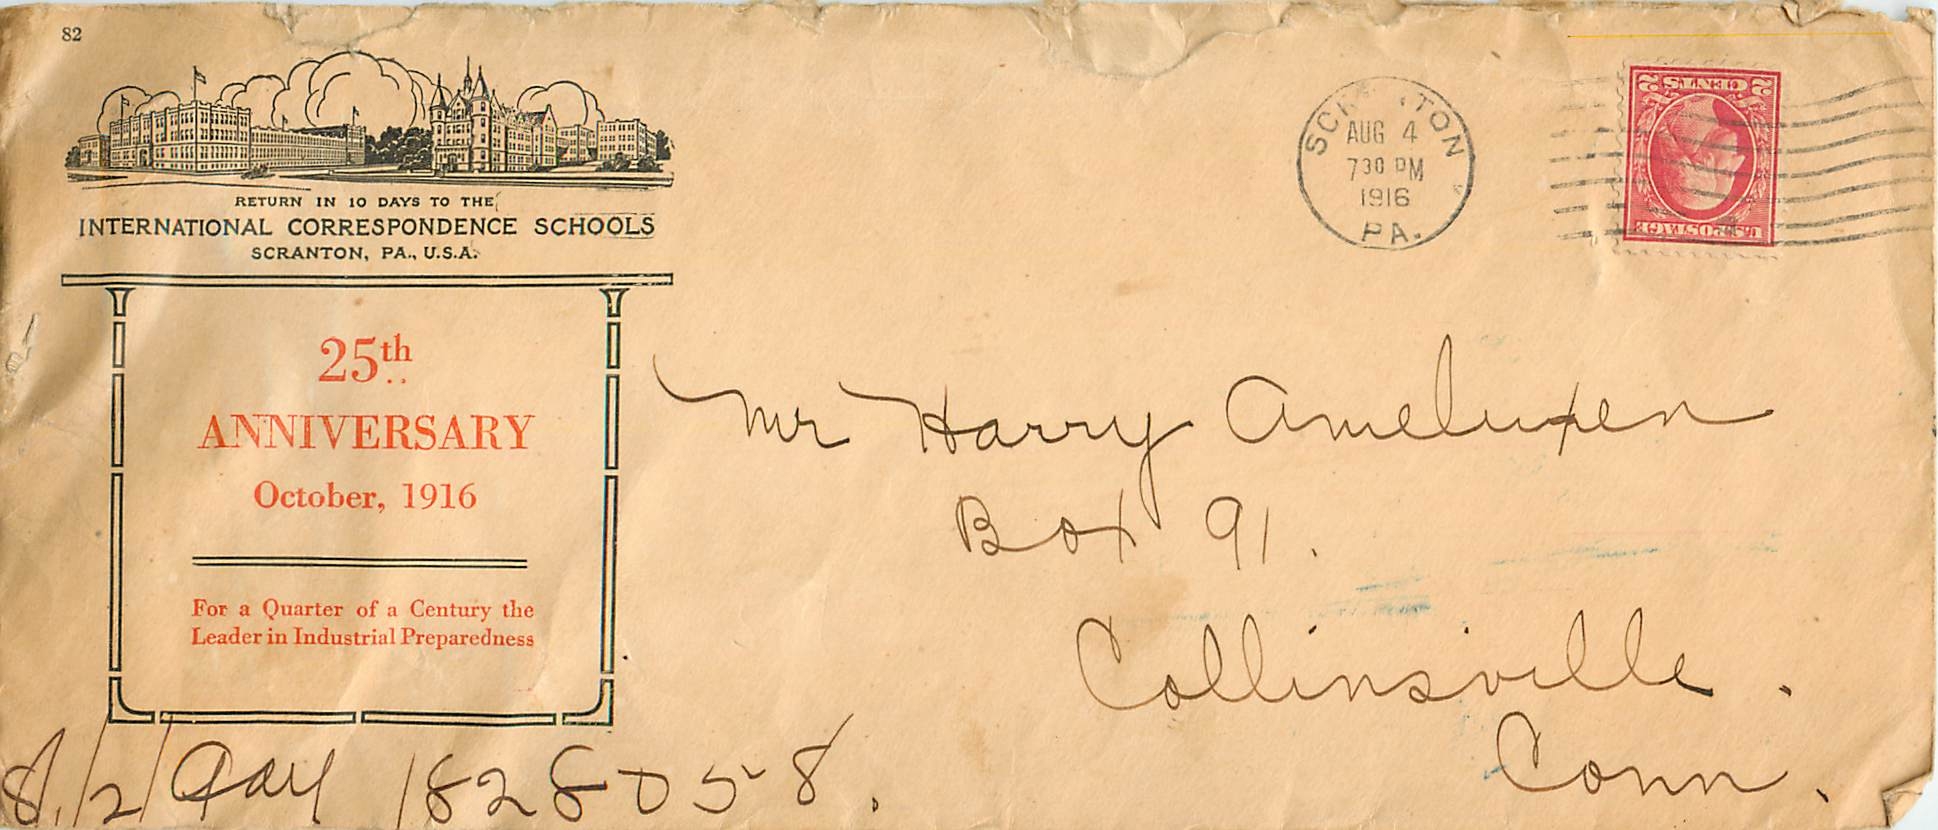 82
RETURN IN 10 DAYS TO THE
INTERNATIONAL CORRESPONDENCE SCHOOLS
SCRANTON, PA., U.S.A.
25th
ANNIVERSARY
October, 1916
For a Quarter of a Century the
Leader in Industrial Preparedness
SCRANTON
AUG 4
730 PM
1916
PA.
2 CENTS 2
U.S. POSTAGE
Mr Harry Ameluxen
Box 91.
Collinsville.
Conn.
1828058.